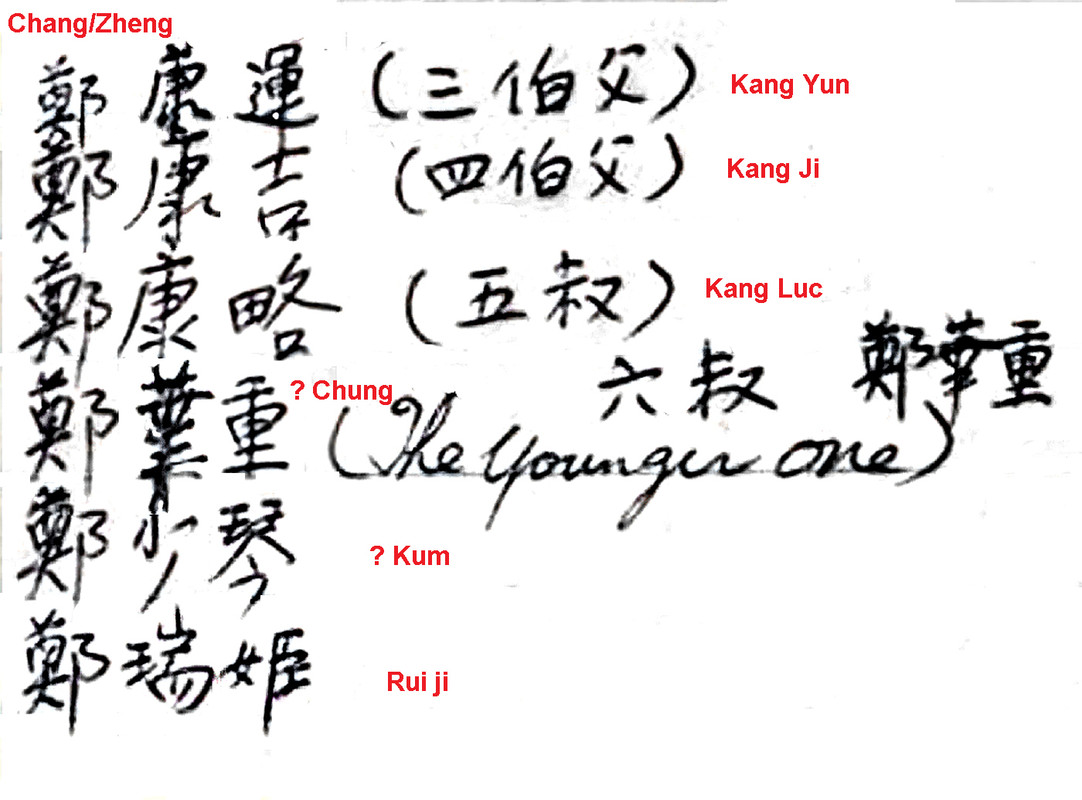 Chang/Zheng
鄭康運 (三伯父) Kang Yun
鄭康吉 (四伯父) Kang Ji
鄭康略 (五叔) Kang Luc
鄭華重 ? Chung 六叔 鄭華重
(The younger one)
鄭少琴 ? Kum
鄭瑞姬 Rui ji